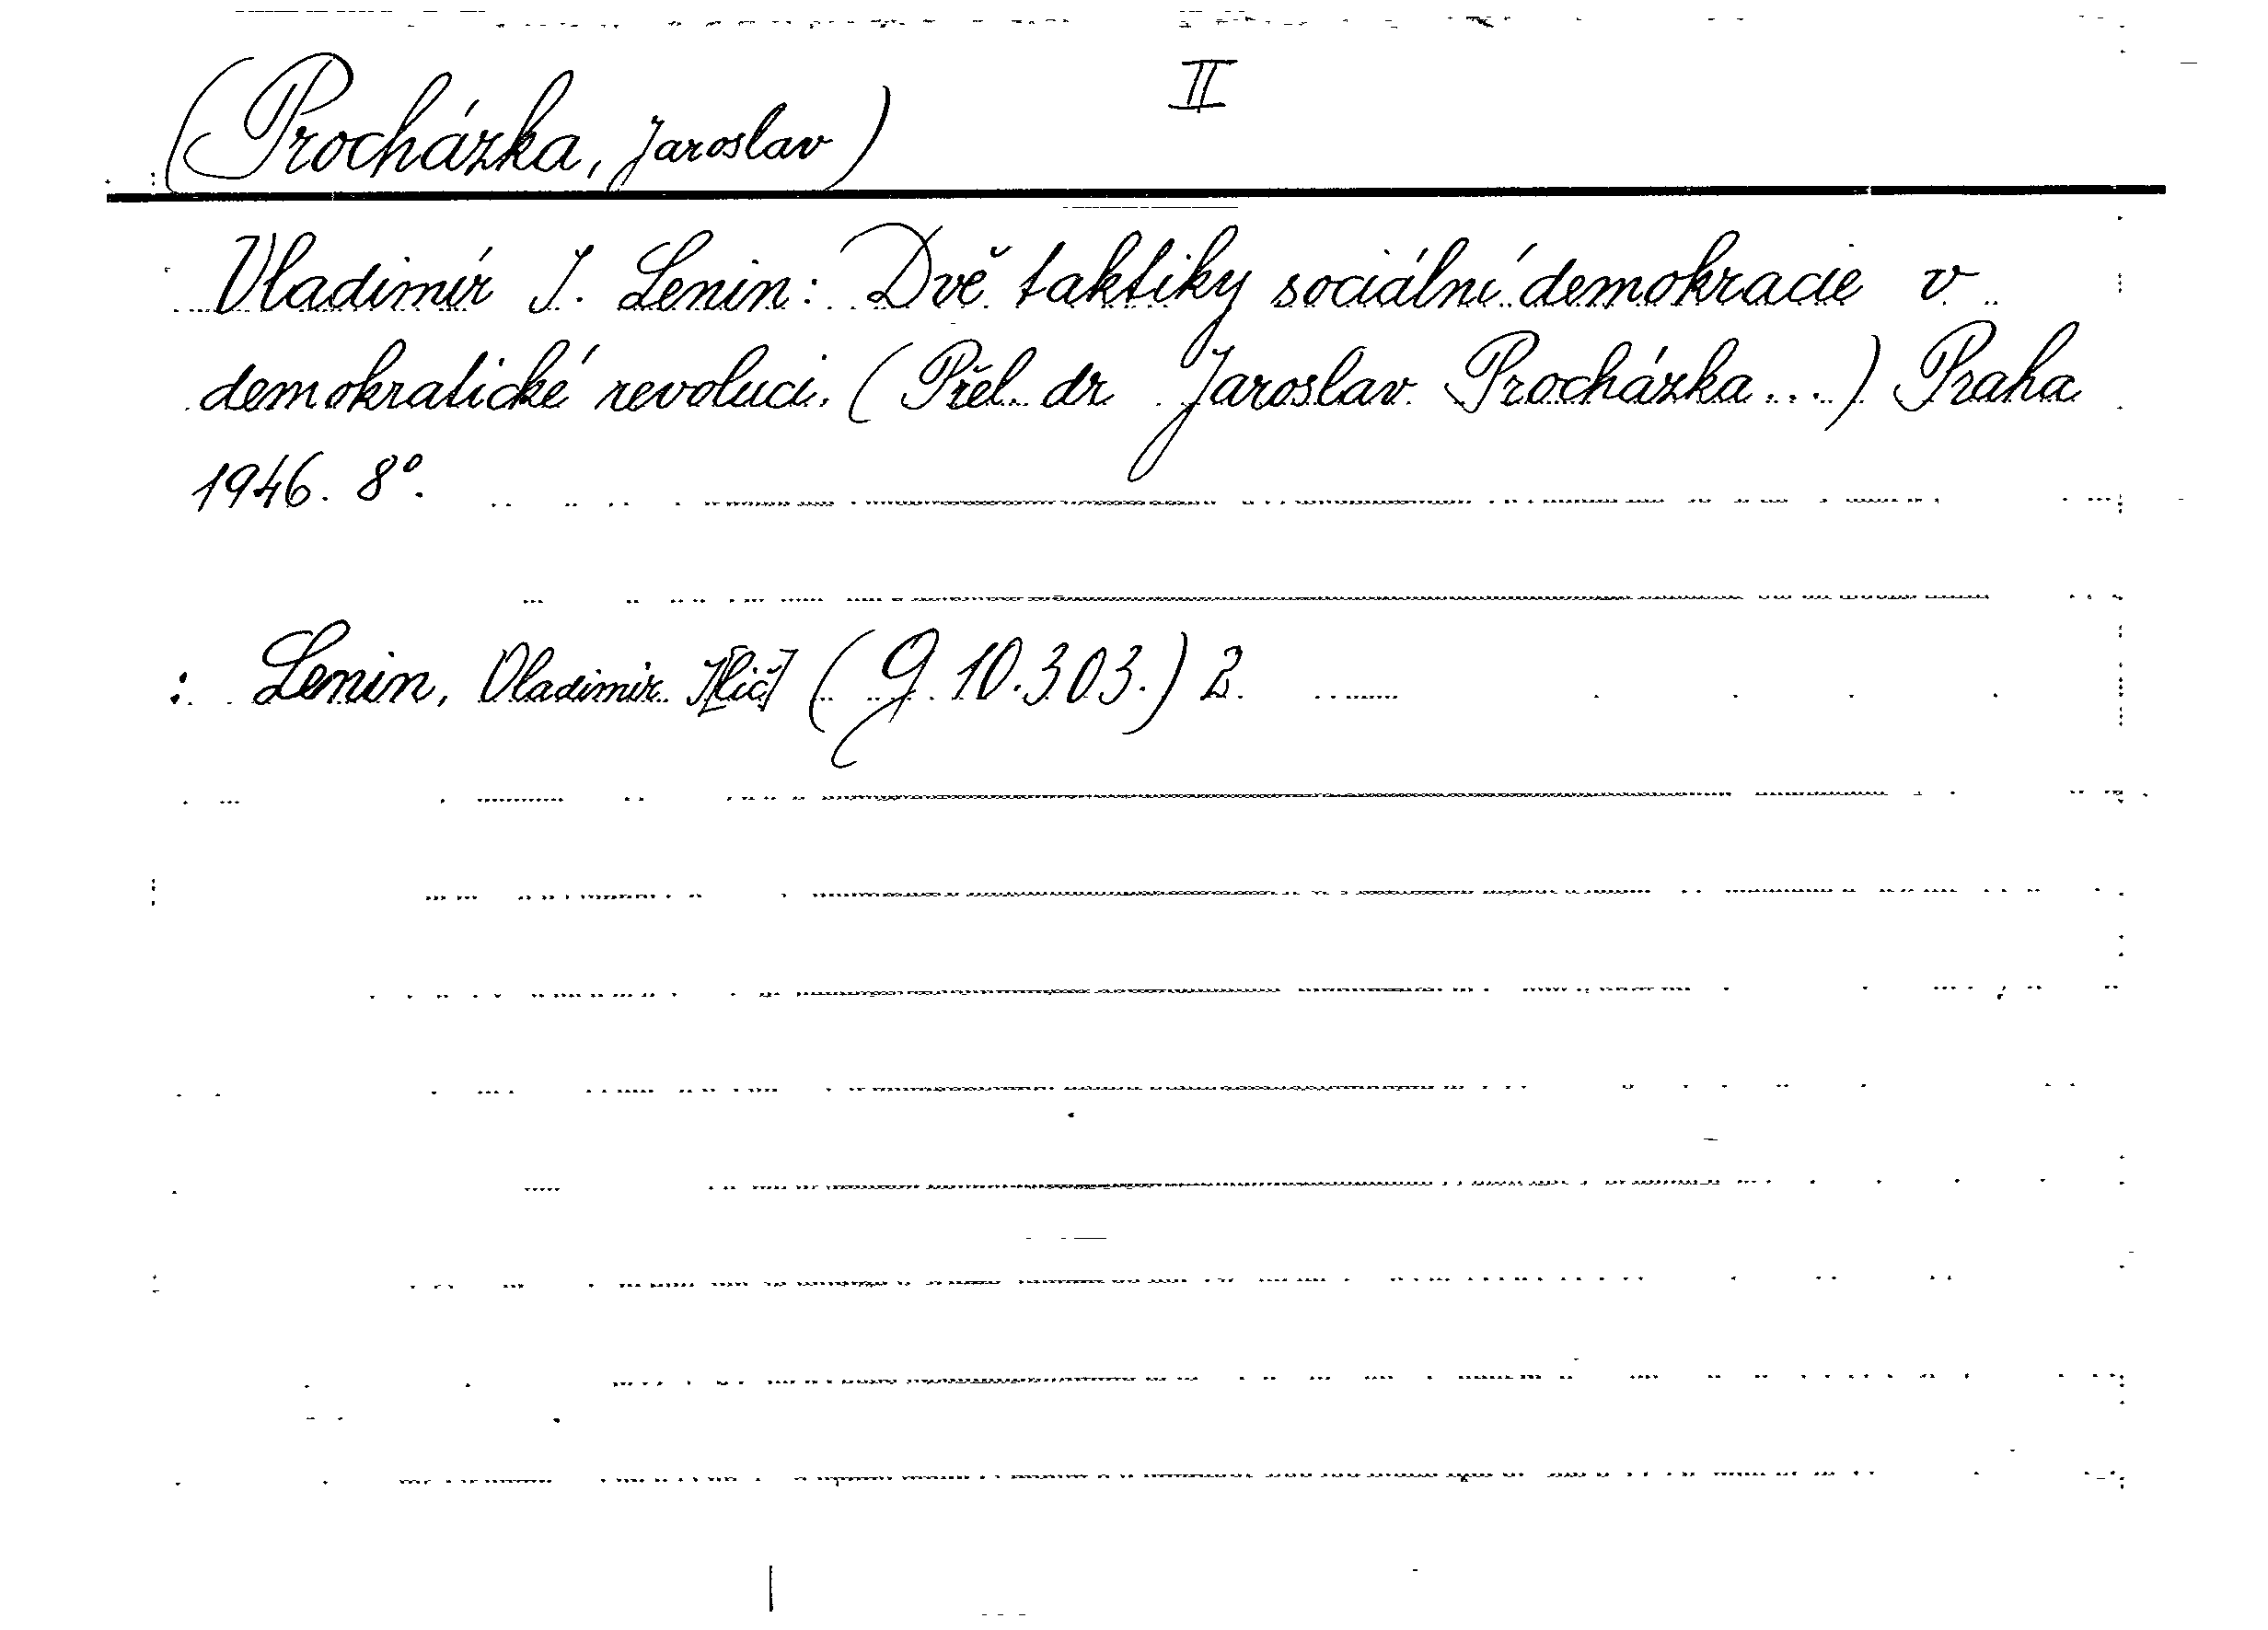 (Procházka, Jaroslav) II
Vladimír I. Lenin: Dvě taktiky sociální demokracie v
demokratické revoluci. (Přel. dr Jaroslav Procházka...) Praha
1946. 8°.
: Lenin, Vladimir I[lič] (G 10.303.) 2.